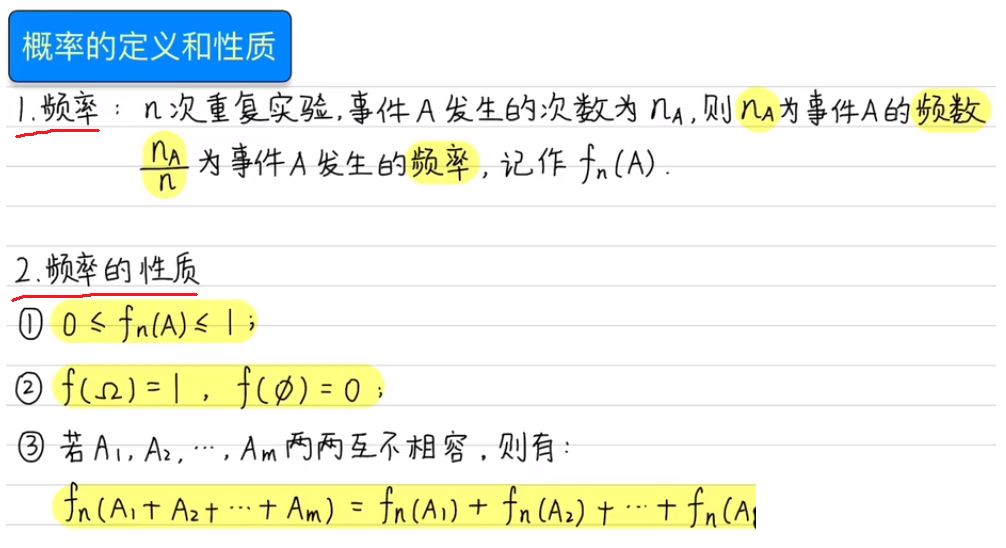 概率的定义和性质
1.频率：n次重复实验,事件A发生的次数为 n_A,则n_A为事件A的频数
n_A/n 为事件A发生的频率,记作 f_n(A).
2.频率的性质
① 0≤f_n(A)≤1;
② f(Ω)=1, f(∅)=0;
③ 若A₁,A₂,…,Aₘ两两互不相容,则有:
f_n(A₁+A₂+…+Aₘ)=f_n(A₁)+f_n(A₂)+…+f_n(A